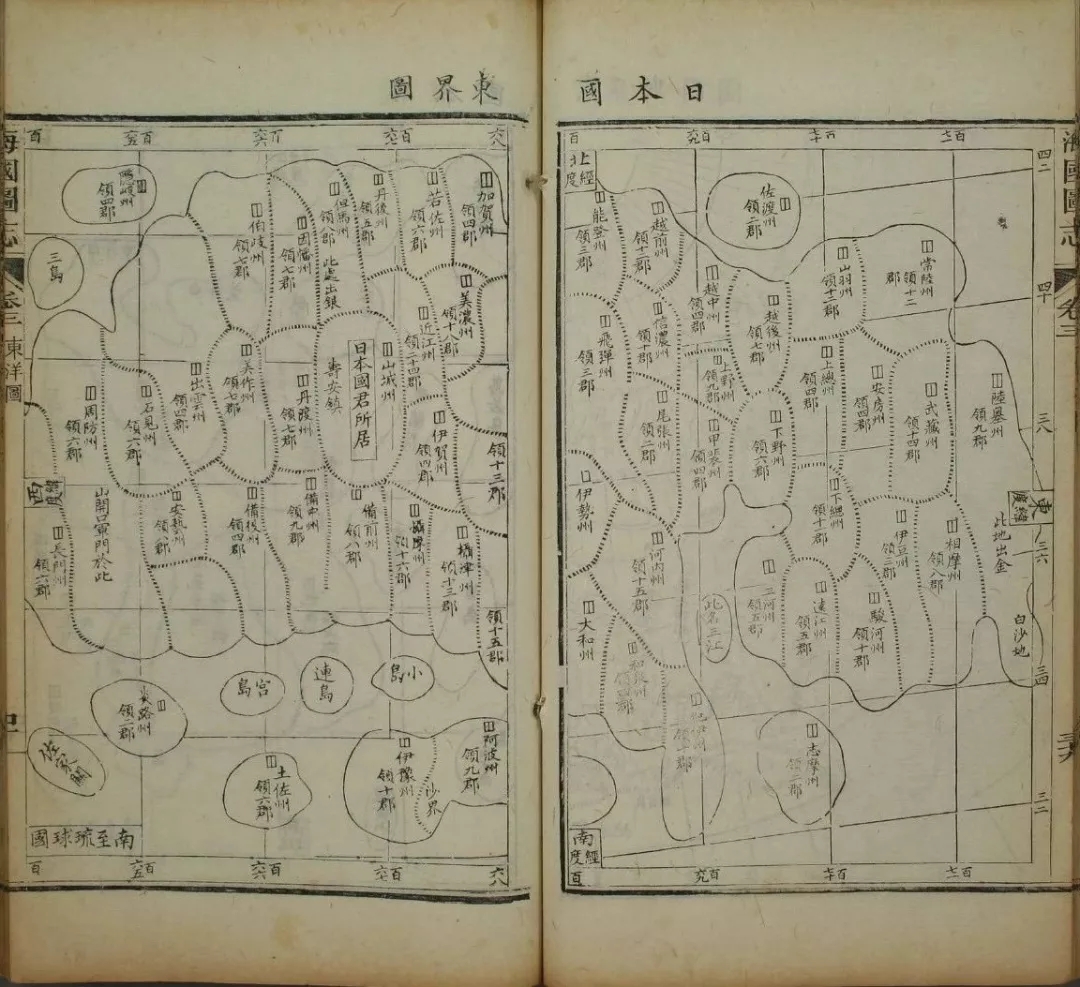 日本國
東界圖
海國圖志
卷三
四二
四十
三八
三六
三四
三二
北經度
佐渡州
領二郡
常陸州
領十二郡
山羽州
領十二郡
越後州
領七郡
越中州
領四郡
越前州
領十二郡
能登州
領三郡
陸奧州
領九郡
武藏州
領十四郡
安房州
領四郡
上總州
領四郡
上野州
領九郡
信濃州
領十郡
飛彈州
領三郡
下野州
領六郡
甲張州
領四郡
尾張州
領二郡
伊勢州
此地出金
白沙地
相摩州
領八郡
伊豆州
領三郡
下總州
領十郡
駿河州
領十郡
遠江州
領五郡
三河州
領五郡
河内州
領十五郡
此名三江
大和州
志摩州
領二郡
南經度
加賀州
領四郡
若佐州
領六郡
丹後州
領五郡
但馬州
領八郡
此處出銀
因幡州
領七郡
伯岐州
領七郡
隱岐州
領四郡
三島
美濃州
領十八郡
近江州
領二十四郡
山城州
日本國君所居
壽安鎮
丹渡州
領七郡
美作州
領七郡
出雲州
領四郡
石見州
領六郡
周防州
領六郡
領十三郡
伊賀州
領四郡
攝津州
領十三郡
領十六郡
備前州
領八郡
備中州
領九郡
備後州
領四郡
安藝州
領八郡
山開口軍門於此
長門州
領六郡
領十五郡
小島
連島
宮島
淡路州
領二郡
阿波州
領九郡
沙界
伊豫州
領十郡
土佐州
領六郡
南至琉球國
海國圖志
卷三
東洋圖